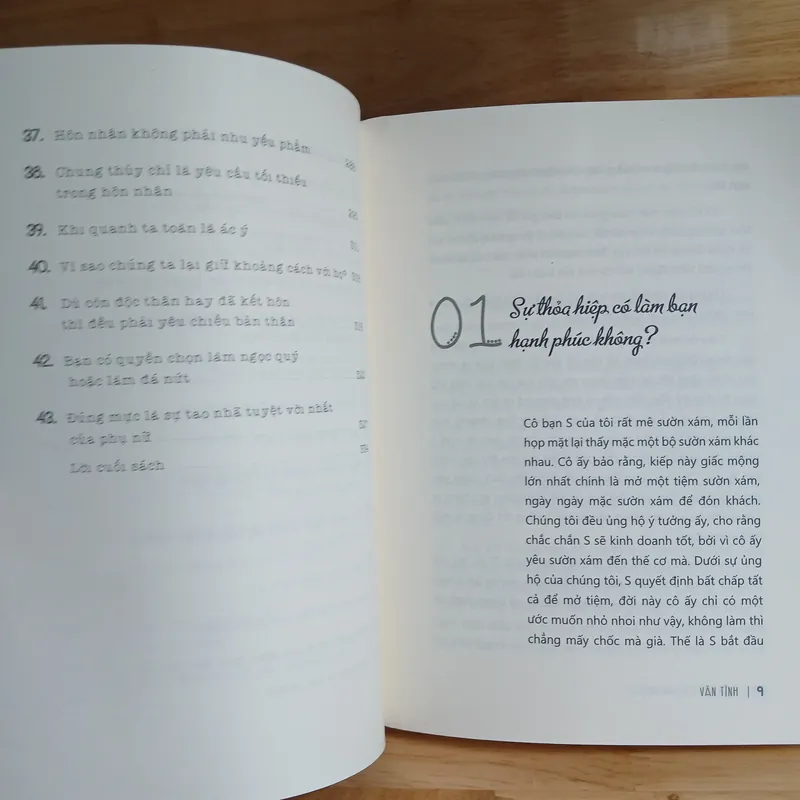 37. Hôn nhân không phải nhu yếu phẩm
38. Chung thủy chỉ là yêu cầu tối thiểu
trong hôn nhân
39. Khi quanh ta toàn là ác ý
40. Vì sao chúng ta lại giữ khoảng cách với họ?
41. Dù còn độc thân hay đã kết hôn
thì đều phải yêu chiều bản thân
42. Bạn có quyền chọn làm ngọc quý
hoặc làm đá nứt
43. Đúng mực là sự tao nhã tuyệt vời nhất
của phụ nữ
Lời cuối sách
01 Sự thỏa hiệp có làm bạn
hạnh phúc không?
Cô bạn S của tôi rất mê sườn xám, mỗi lần
họp mặt lại thấy mặc một bộ sườn xám khác
nhau. Cô ấy bảo rằng, kiếp này giấc mộng
lớn nhất chính là mở một tiệm sườn xám,
ngày ngày mặc sườn xám để đón khách.
Chúng tôi đều ủng hộ ý tưởng ấy, cho rằng
chắc chắn S sẽ kinh doanh tốt, bởi vì cô ấy
yêu sườn xám đến thế cơ mà. Dưới sự ủng
hộ của chúng tôi, S quyết định bất chấp tất
cả để mở tiệm, đời này cô ấy chỉ có một
ước muốn nhỏ nhoi như vậy, không làm thì
chẳng mấy chốc mà già. Thế là S bắt đầu
VÃN TÌNH | 9